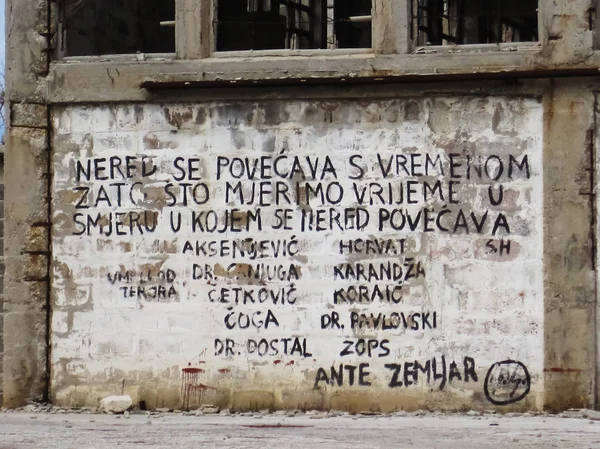 NERED SE POVEĆAVA S VREMENOM
ZATO ŠTO MJERIMO VRIJEME U
SMJERU U KOJEM SE NERED POVEĆAVA
AKSENTJEVIĆ HORVAT SH
DR. CANJUGA KARANDŽA
CETKOVIĆ KORAIĆ
ČOGA DR. PAVLOVSKI
DR. DOSTAL ZOPS
ANTE ZEMLJAR